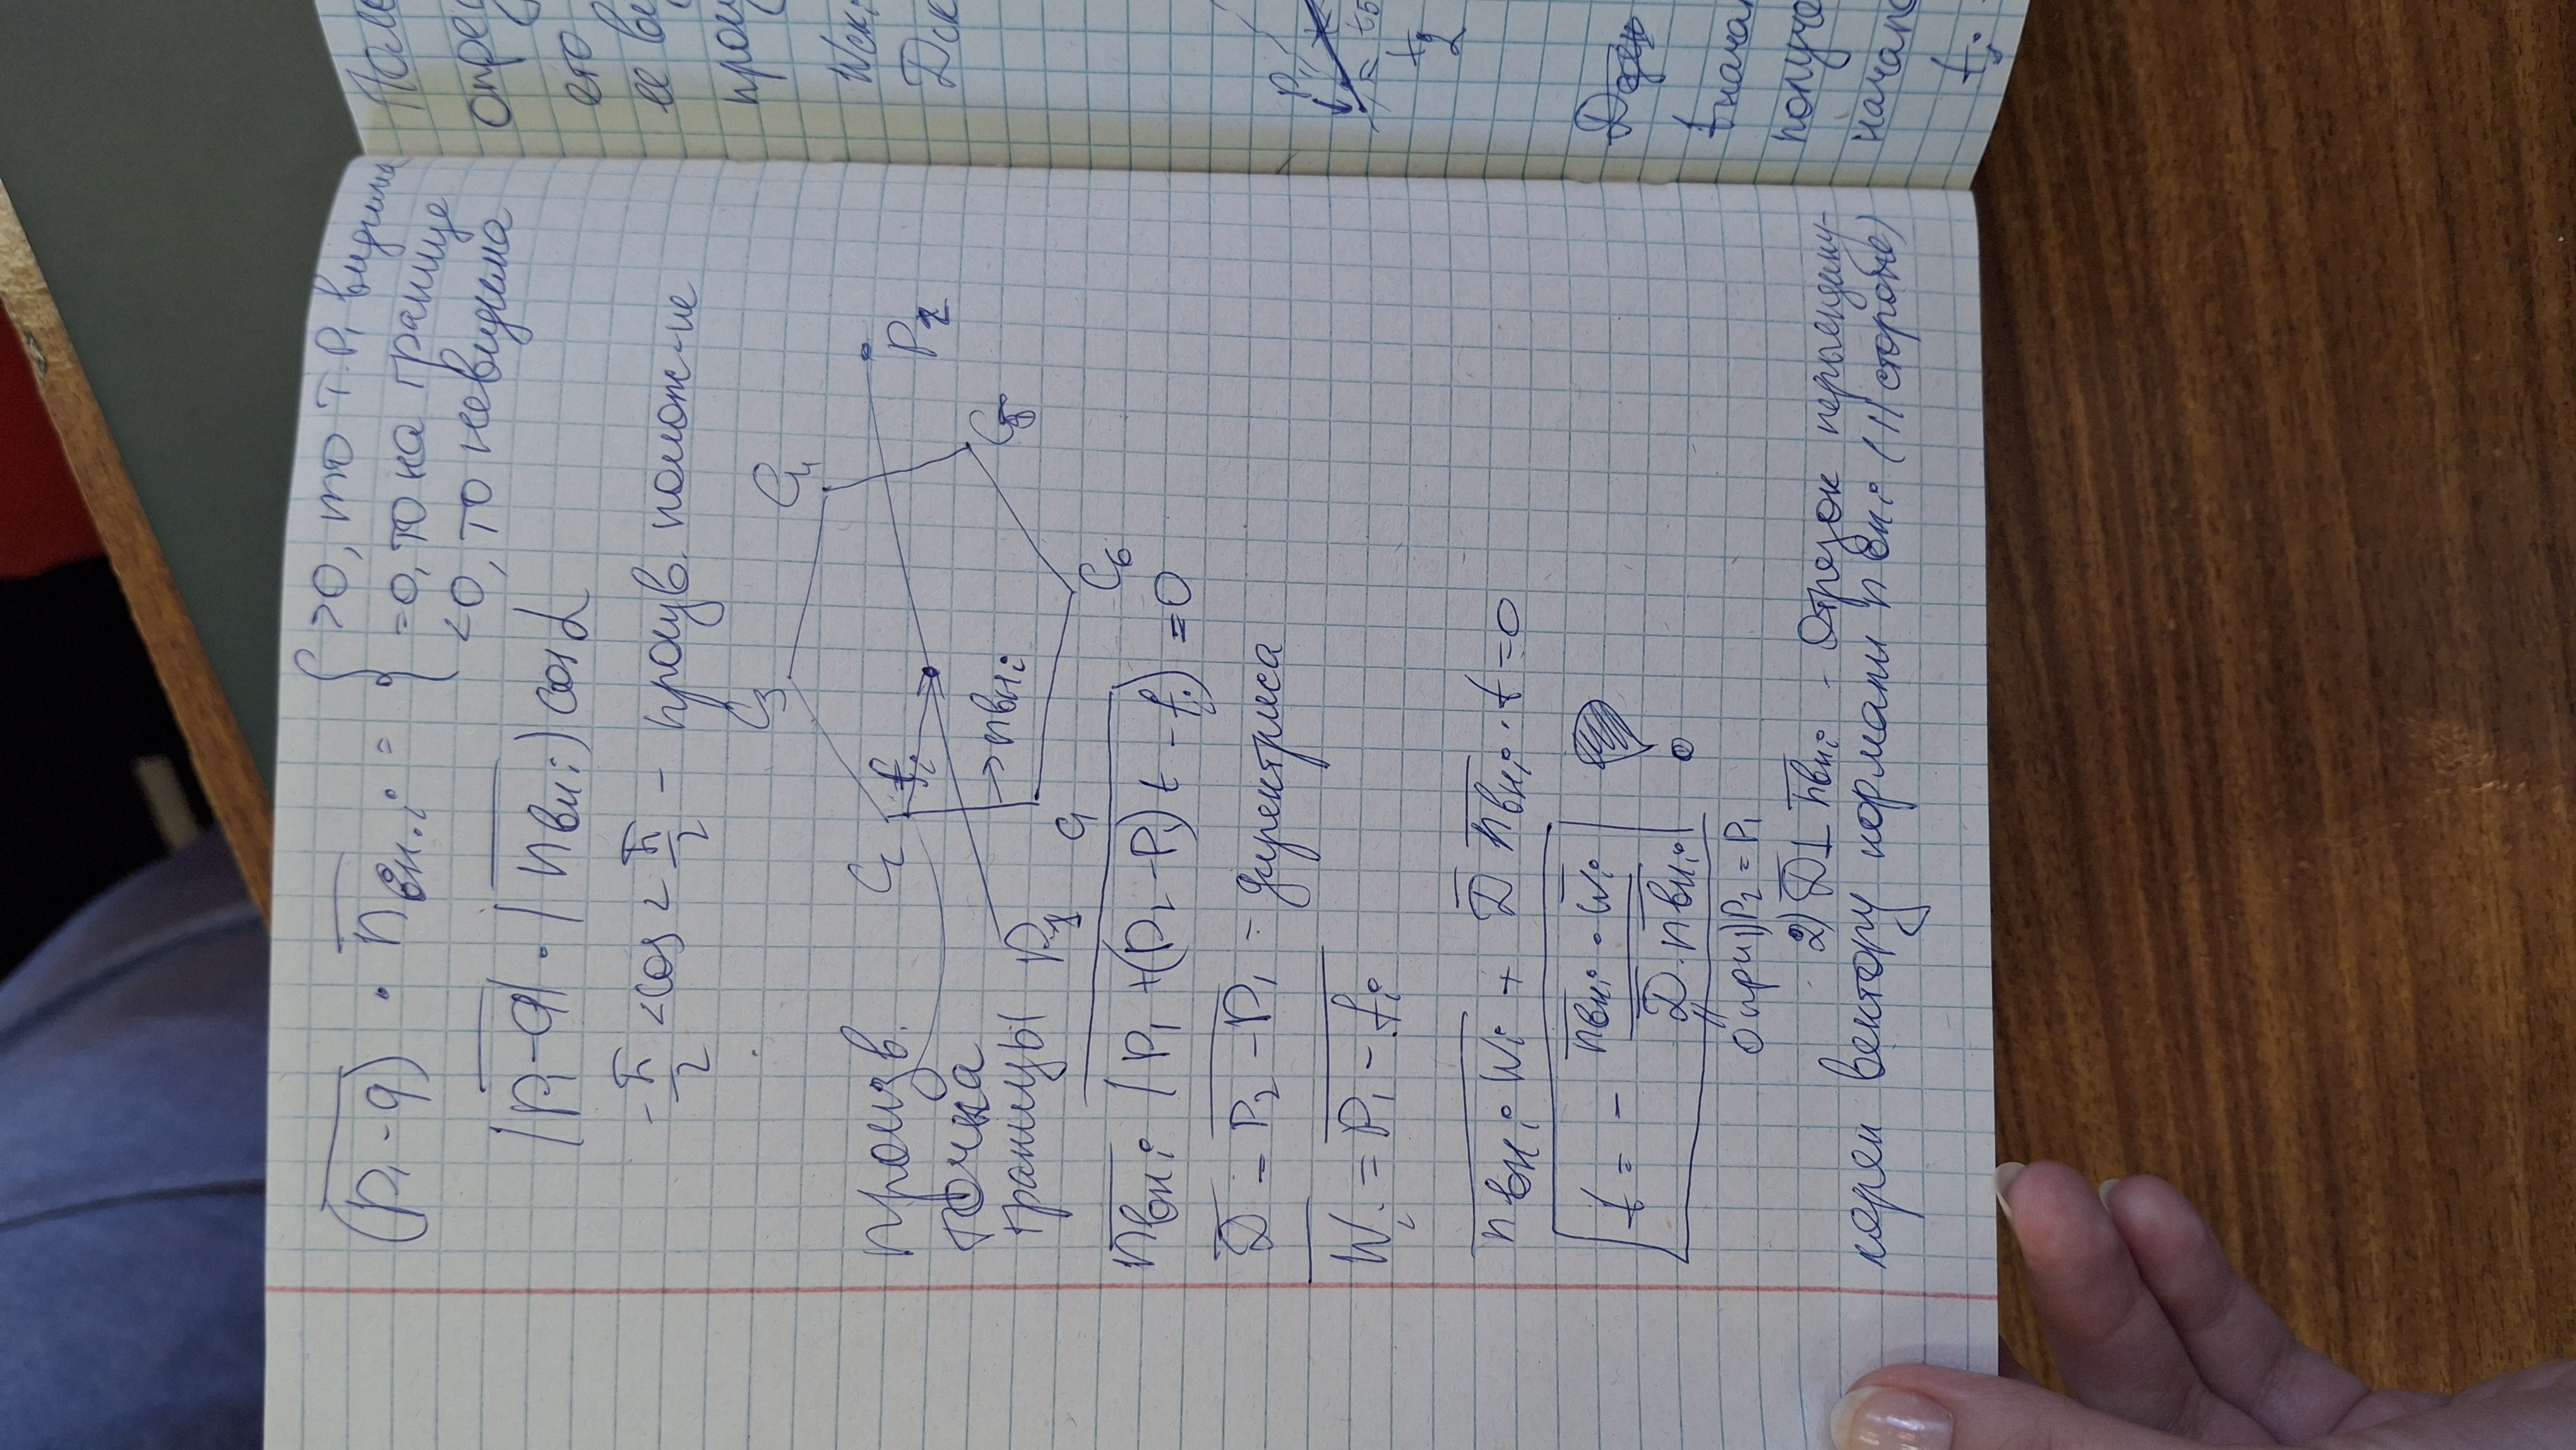 (p₁ - q) · n вн.i = { >0, то т. P₁ видима
=0, то на границе
<0, то невидима
|p₁ - q| · |n вн i) cos α
-π/2 < cos < π/2 - произв. полож-ие
C₃
C₄
C₂
fᵢ
P₂
произв.
точка
границы
n внᵢ
P₁
C₁
C₅
C₆
n внᵢ (P₁ + (P₂ - P₁) t - fᵢ) = 0
D = P₂ - P₁ - директриса
Wᵢ = P₁ - fᵢ
n внᵢ Wᵢ + D n внᵢ · t = 0
t = - n внᵢ · Wᵢ / D · n внᵢ !
0 при 1) P₂ = P₁
2) D ⊥ n внᵢ - Отрезок перпендику-
лярен вектору нормали n внᵢ (|| стороне)
его
Wскᵢ
Dск
P₁
t₂
tнача
получе
начало